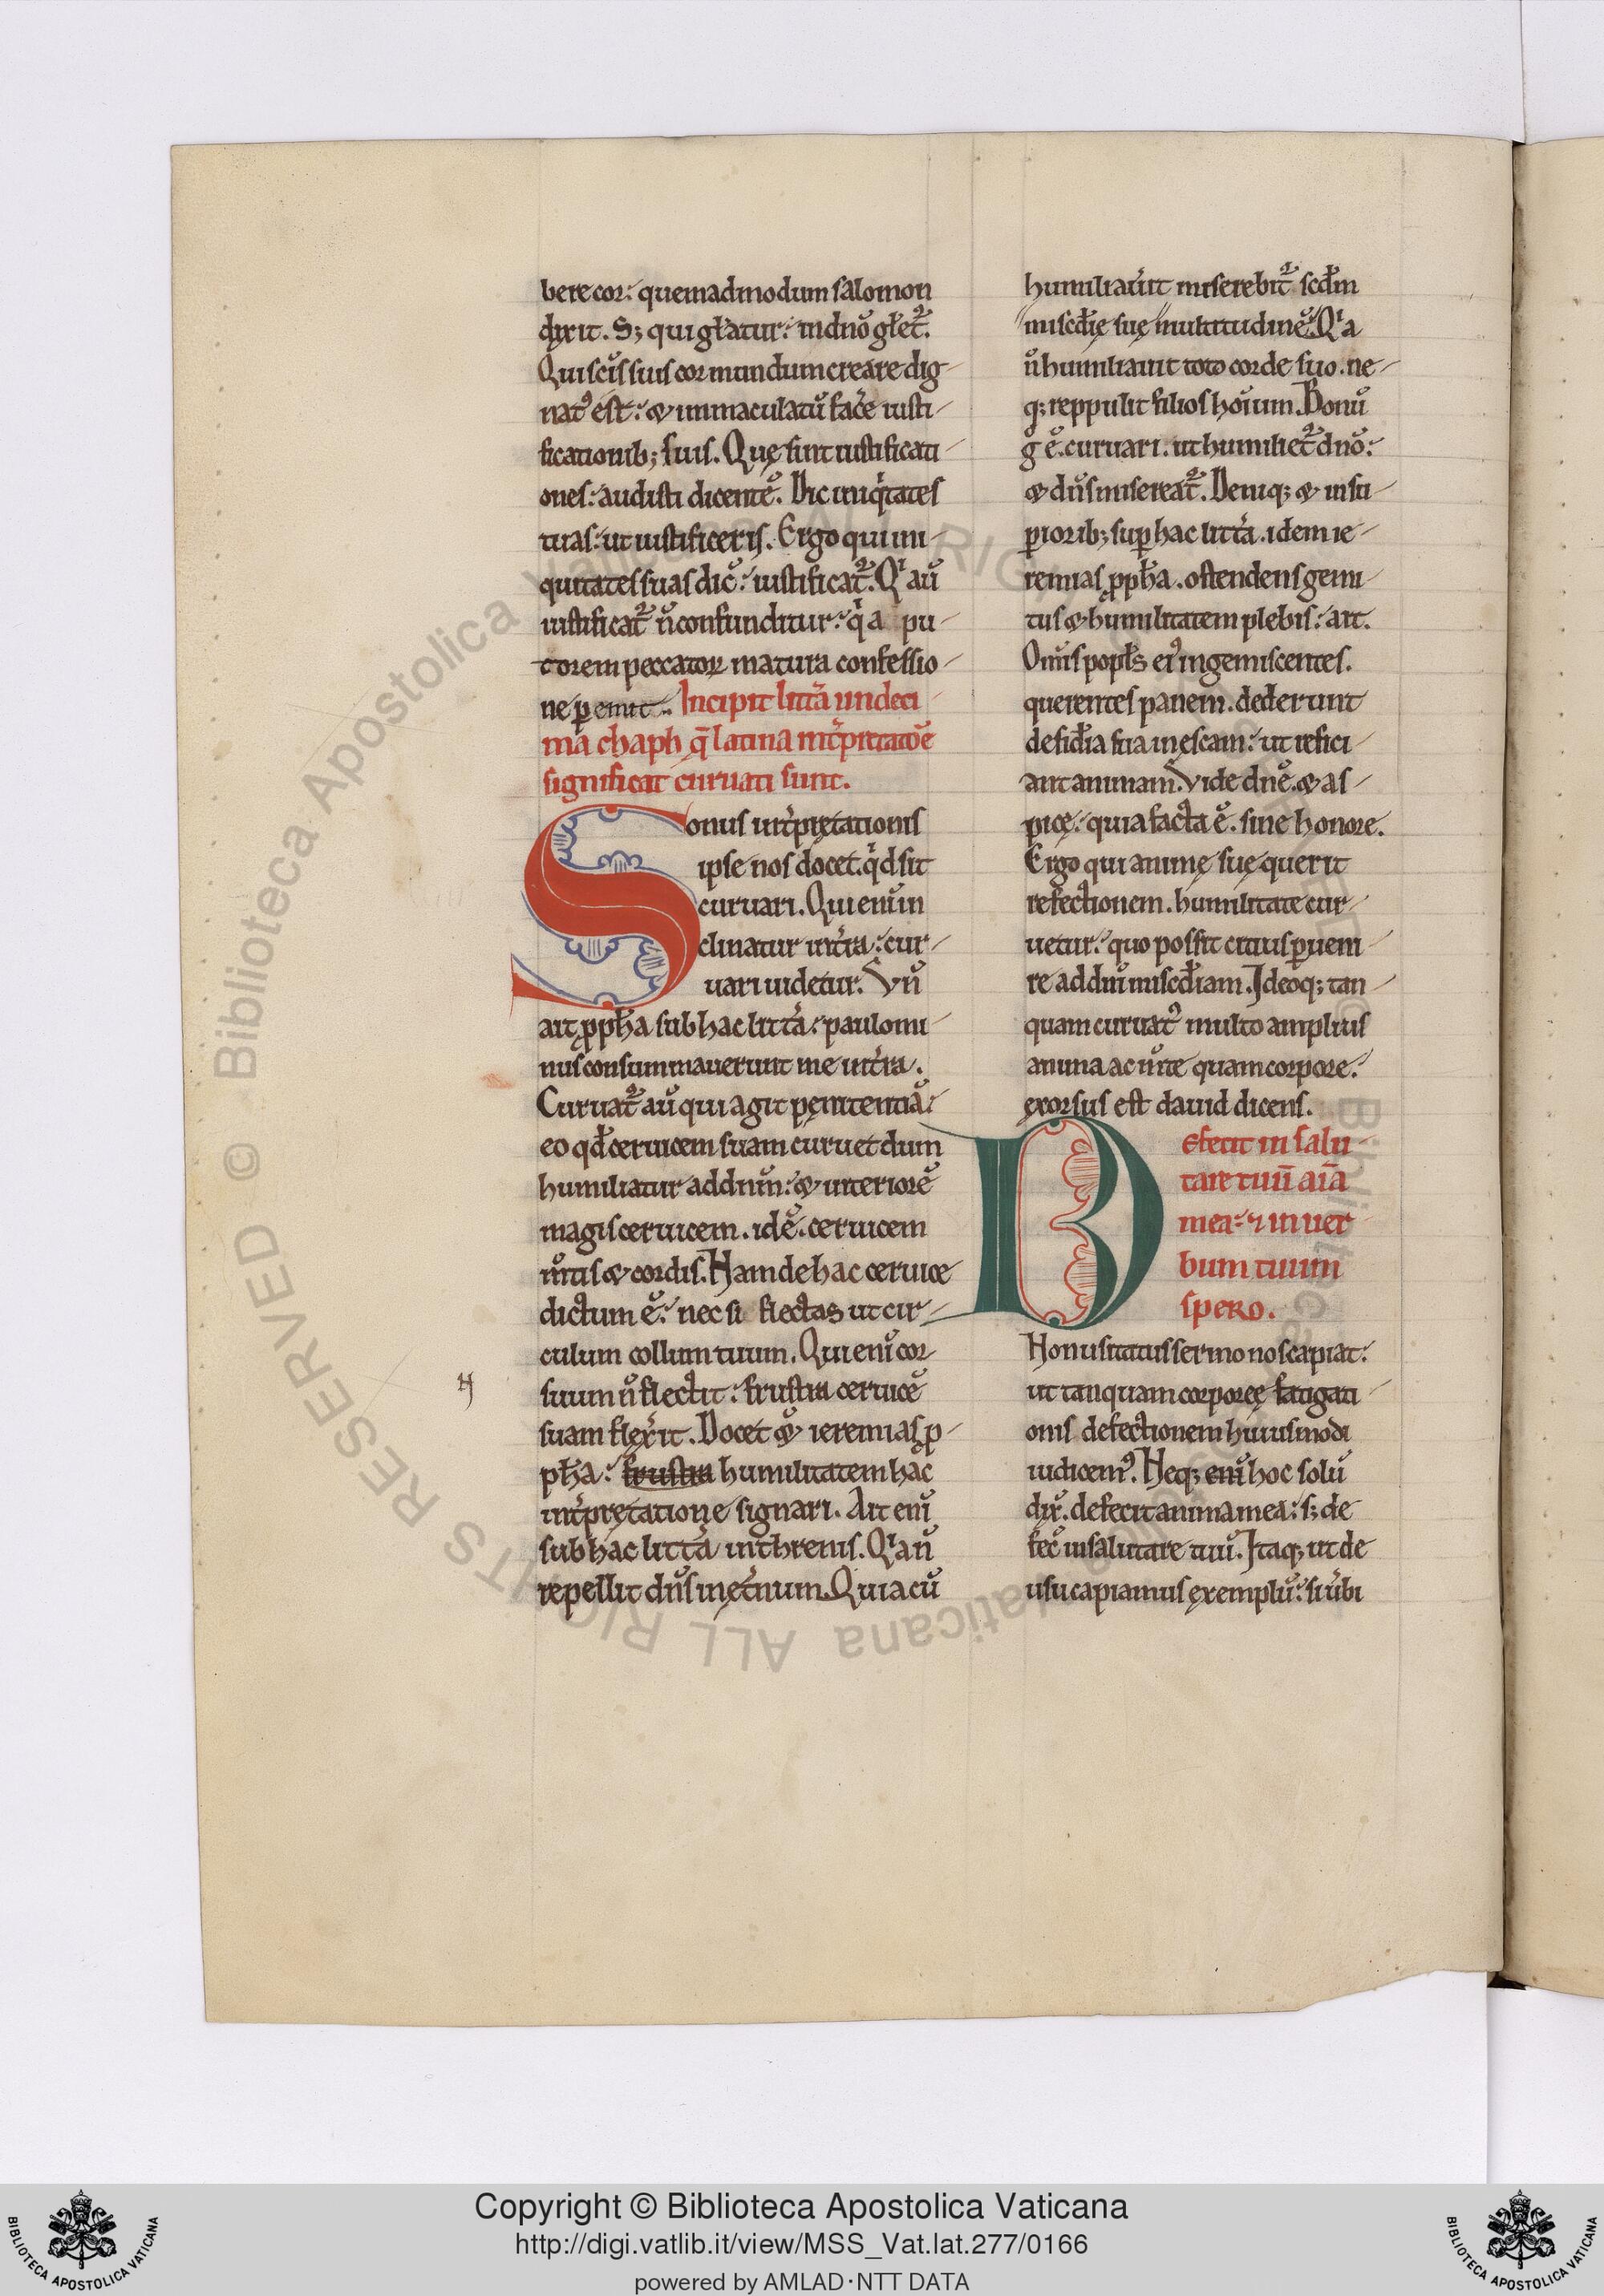 bere cor: quemadmodum salomon
dixit. S; qui głatur: in dn̄o głet᷑.
Qui scīs suis cor mundum creare dig-
nat᷒ est: & immaculatū fac̄e iusti-
ficationib; suis. Quę sint iustificati-
ones: audisti dicentē. Dic iniqͥtates
tuas: ut iustificeris. Ergo qui ini-
quitates suas dic̄: iustificat᷑. Qͥ aū
iustificat᷑ n̄ confunditur: qͥa pu-
torem peccatoꝝ matura confessio-
ne ꝑemit. Incipit litt̄a undeci-
ma chaph q̄ latina int̄pretatōe
significat curuati sunt.
Sonus int̄pretationis
ipse nos docet. qͥd sit
curuari. Qui enim in
clinatur int̄ra: cur-
uari uidetur. Vn̄
ait ꝓpħa sub hac litt̄a: paulomi-
nus consummauerunt me int̄ra.
Curuat᷑ aū qui agit pęnitentiā:
eo qđ ceruicem suam curuet dum
humiliatur ad dnm̄: & interiorē
magis ceruicem. id ē. ceruicem
m̄tis & cordis. Nam de hac ceruice
dictum ē: nec si flectas ut cir-
culum collum tuum. Qui enī cor
suum n̄ flectit: frustra ceruicē
suam flex̄it. Docet & ieremias ꝓ-
pħa: frustra humilitatem hac
int̄pretatione signari. Ait enī
sub hac litt̄a in threnis. Qͥ a n̄
repellit dn̄s in ęt̄num. Quia cū
humiliau̅it miserebit᷑ scđm
miscđię suę multitudinē. Qͥa
n̄ humiliauit toto corde suo. ne-
q; reppulit filios hoīum. Bonū
g̊ ē. curuari. ut humiliet᷑ dn̄o:
& dn̄s misereat᷑. Deniq; & in su-
ꝑiorib; suꝑ hac litt̄a. idem ie-
remias ꝓpħa. ostendens gemi-
tus & humilitatem plebis: ait.
Omīs popłs ei᷒ ingemiscentes.
querentes panem. dederunt
desiđia sua in ęscam: ut refici-
ant animam. Vide dn̄e. & as-
pice: quia facta ē. sine honore.
Ergo qui animę suę querit
refectionem. humilitate cur-
uetur: quo possit citius ꝑueni-
re ad dnī miscđiam. Ideoq; tan-
quam curuat᷒ multo amplius
anima ac m̄te quam corpore:
exorsus est dauid dicens.
Defecit in salu-
tare tuū aīa
mea: ⁊ in uer-
bum tuum
spero.
Non usitatus sermo nos capiat:
ut tanquam corporeę fatigati-
onis defectionem huiusmodi
iudicem᷒. Neq; enī hoc solū
dix̄. defecit anima mea: s; de
fec̄ in salutare tuū. Itaq; ut de
usu capiamus exemplū: si u̅bi
Copyright © Biblioteca Apostolica Vaticana
http://digi.vatlib.it/view/MSS_Vat.lat.277/0166
powered by AMLAD·NTT DATA